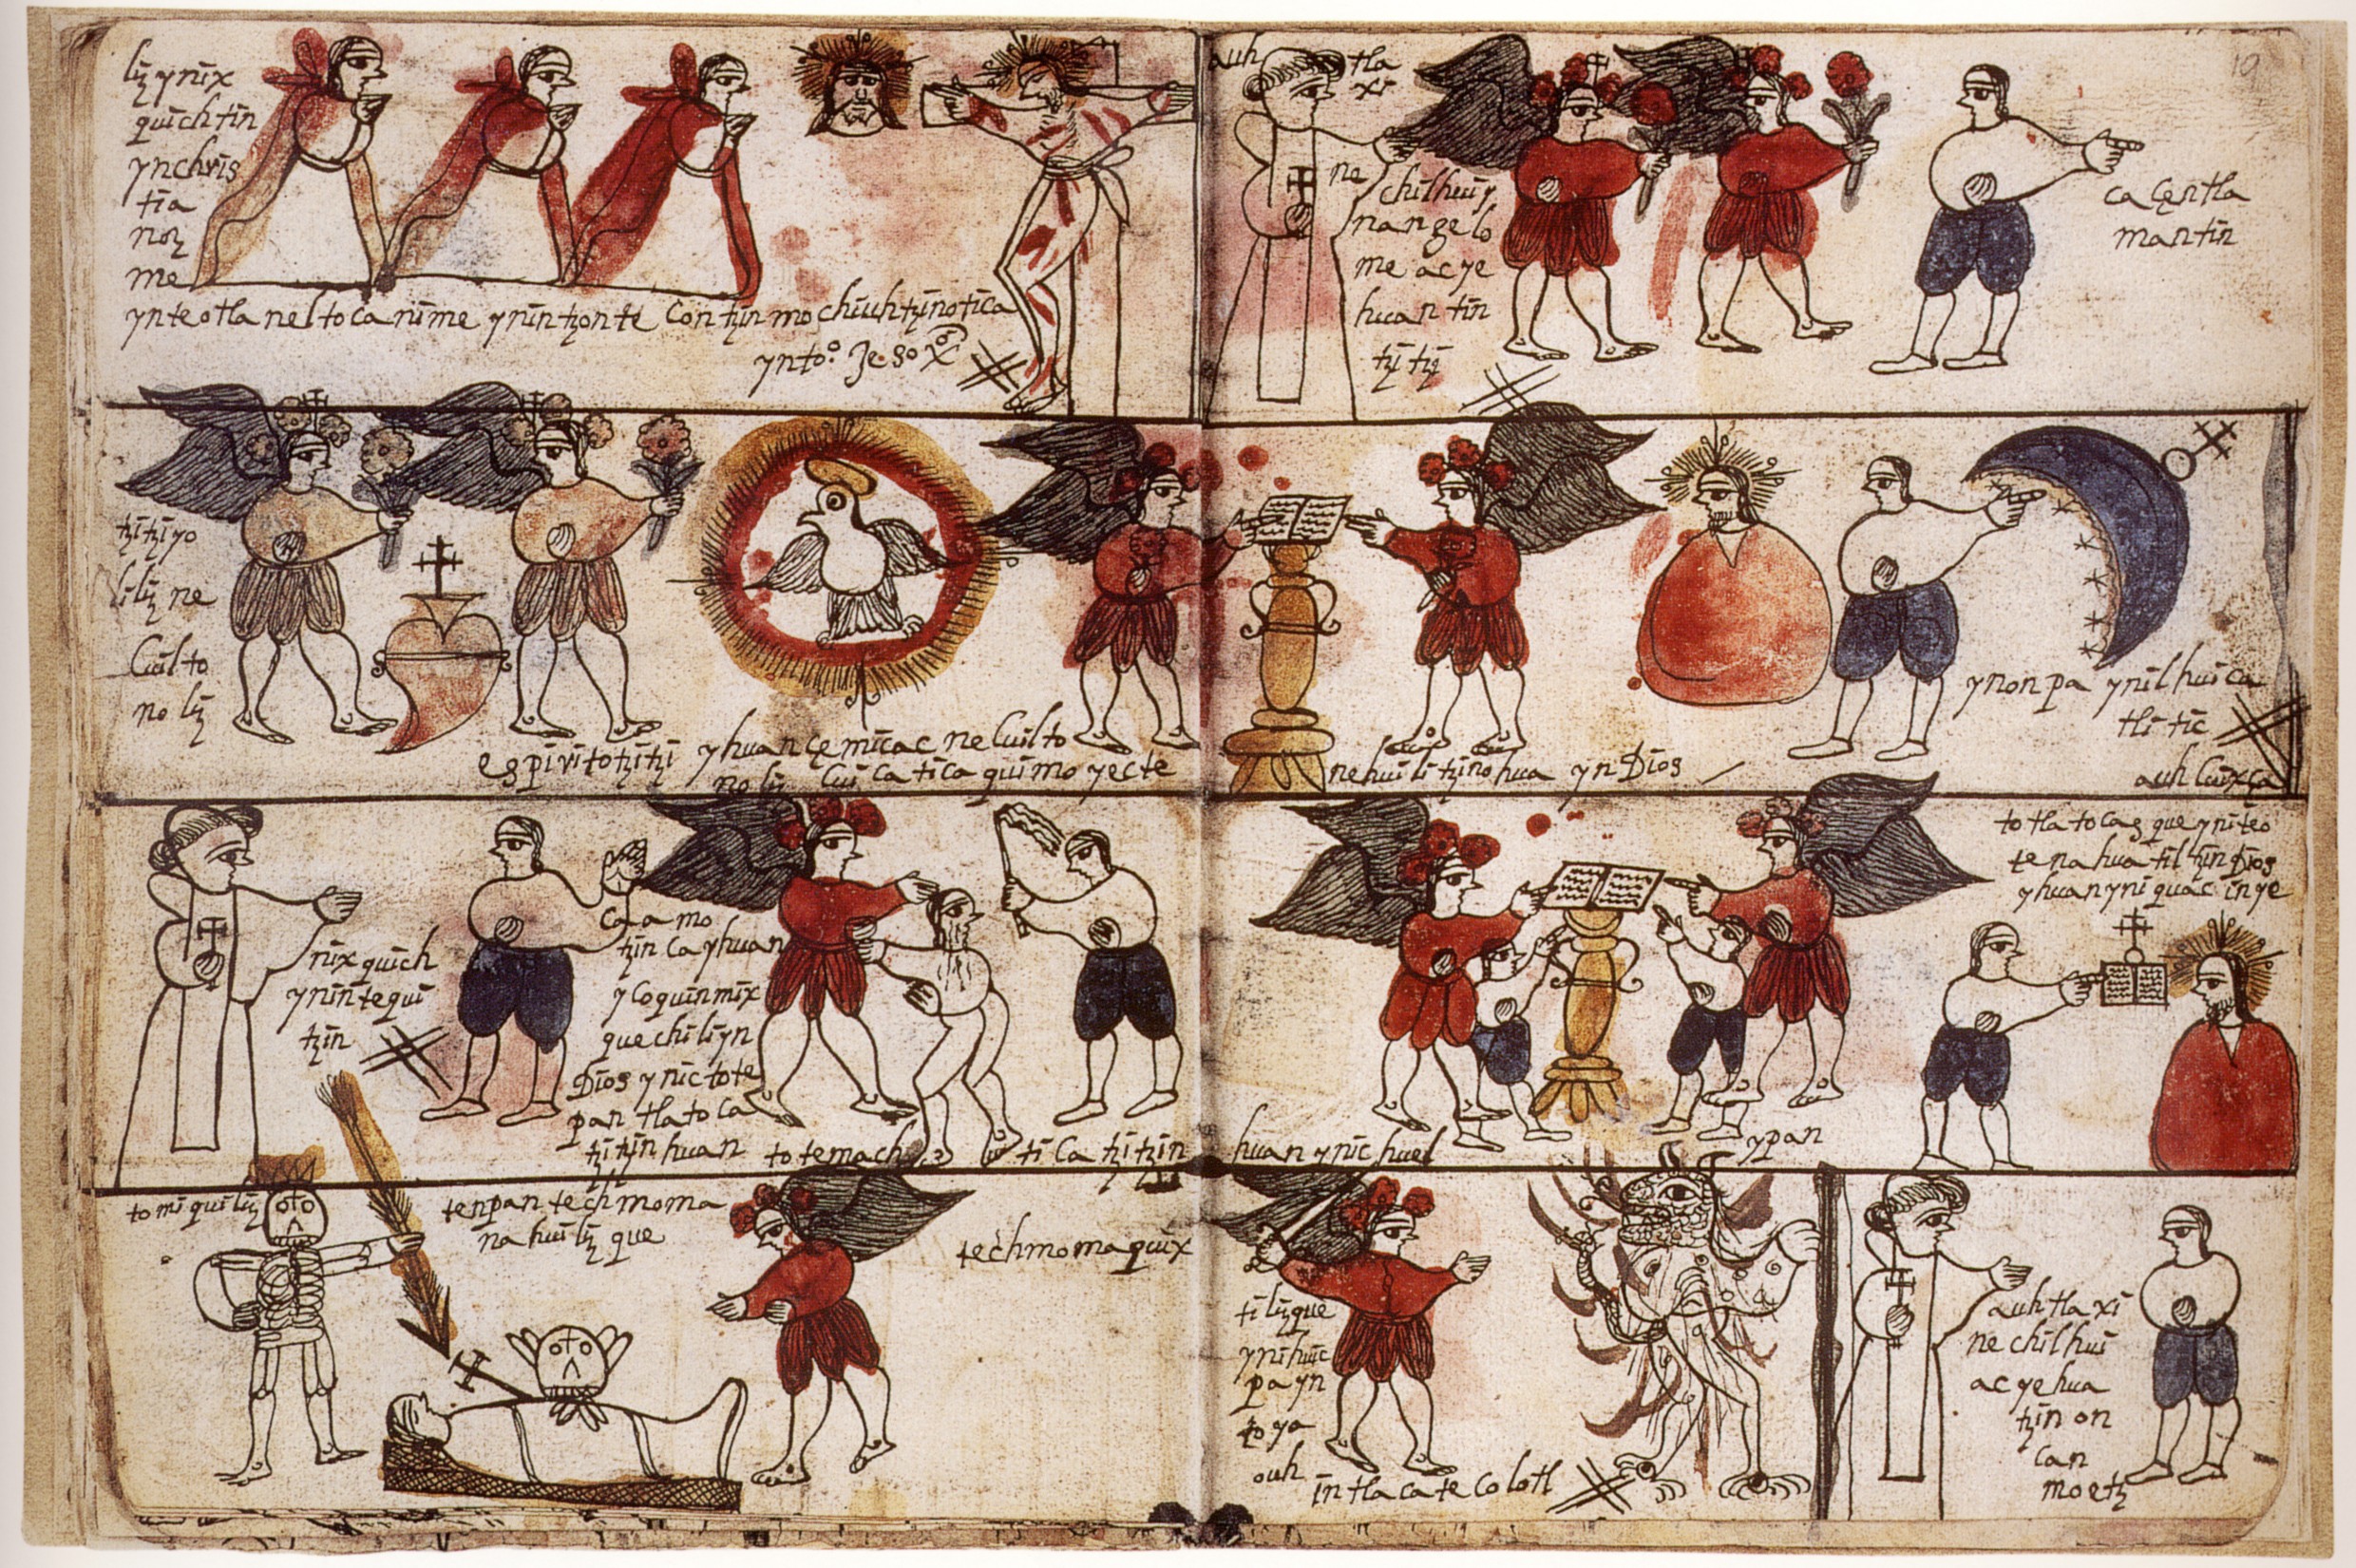 lȝ ynix
quichtin
ynchris
tia
noȝ
me
ynteotlaneltocanime ynintzonte contzinmochiuhtzinotica
ynto.º Jeso Xº
auh tla
xi
ne chilhui y
nangelo
me ac ye
huantin
tzitzi
ca centla
mantin
19
tzitziyo
lilȝ ne
cuilto
nolȝ
espiritotzitzi yhuan cemicac necuilto
nolȝ cuicatica quimoyecte
nehuilitzinohua yn Dios
ynonpa ynilhuica
tlitic
auh cuixça
nixquich
ynintequi
tzin
ca amo
tzin ca yhuan
ycoquinmix
quechiliyn
Dios ynic tote
pantlatoca
tzitzinhuan totemach
ticatzitzin
huan ynic huel
ypan
totlatocasque yniteo
tenahuatiltzin Dios
yhuan yniquac in ye
tomiquilȝ
tenpan techmoma
nahuilȝ que
techmomaquix
tilȝque
ynihuic
pa yn
toya
ouh
intlacatecolotl
auh tla xi
nechilhui
ac yehua
tzin on
can
moetȝ